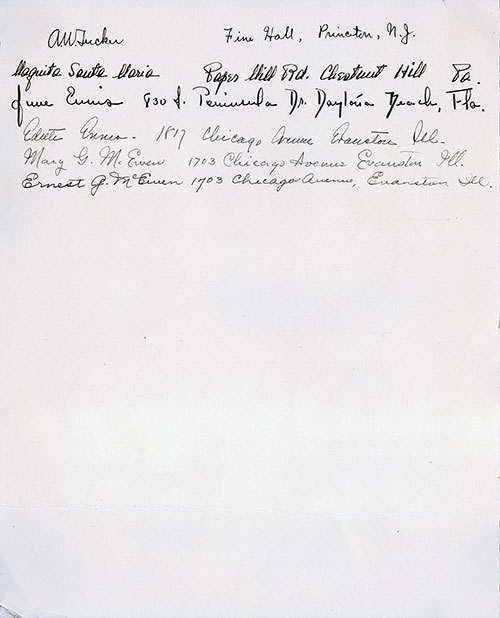 AWTucker Fine Hall, Princeton, N.J.
Maquita Santa Maria Paper Mill Rd. Chestnut Hill Pa.
June Ennis 930 S. Peninsula Dr. Daytona Beach, Fla.
Edith Ennis - 1817 Chicago Avenue Evanston Ill.
Mary G. McEwen 1703 Chicago Avenue Evanston Ill.
Ernest G. McEwen 1703 Chicago Avenue, Evanston Ill.